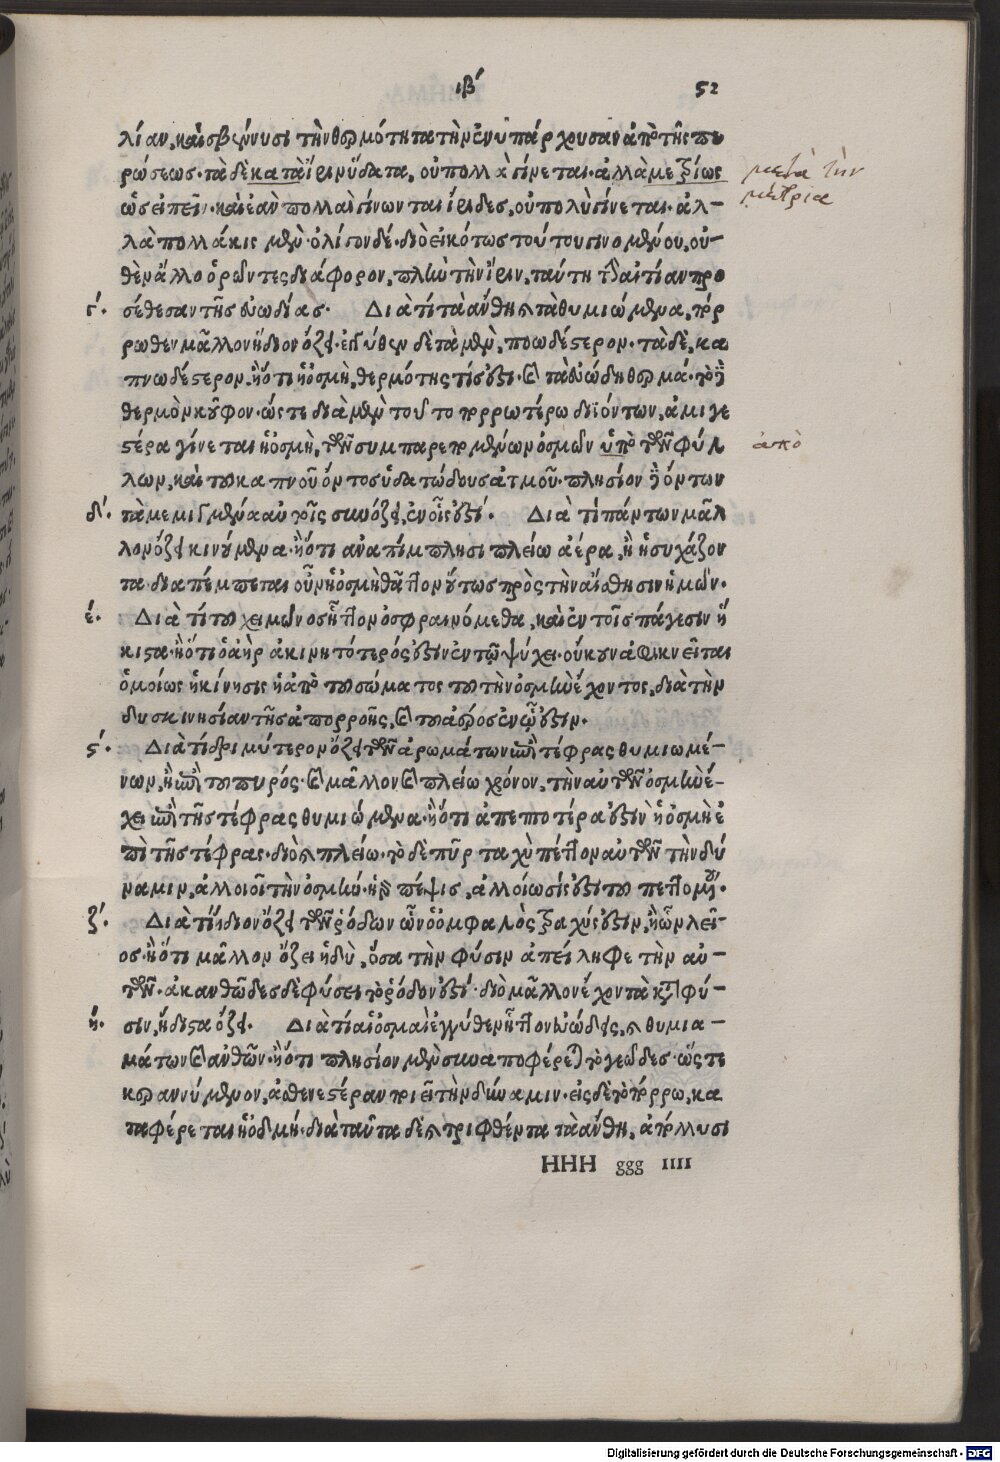 ιβʹ 52
λίαν, καὶ σβεννύουσι τὴν θερμότητα τὴν ἐνυπάρχουσαν ἀπὸ τῆς πυ
ρώσεως· τὰ δὲ κατὰ ἶριν ὕδατα, οὐ πολλὰ γίνεται· ἀλλὰ μετρίως
μετὰ τὴν
μέτρια
ὡς εἰπεῖν· καὶ ἐὰν πολλαὶ γίνωνται ἴριδες, οὐ πολὺ γίνεται· ἀλ-
λὰ πολλάκις μὲν· ὀλίγον δέ· διὸ εἰκότως τούτου γινομένου, οὐ-
θὲν ἄλλο ὁρῶντες διάφορον, πλὴν τὴν ἶριν, ταύτῃ τὴν αἰτίαν προ
γʹ. σέθεσαν τῆς εὐωδίας· Διὰ τί τὰ ἄνθη καὶ τὰ θυμιώμενα, πόρ
ρωθεν μᾶλλον ἥδιον ὄζει· ἐγγύθεν δὲ τὰ μὲν, ποωδέστερον· τὰ δὲ, κα
πνωδέστερον, ἢ ὅτι ἡ ὀσμὴ, θερμότης τίς ἐστι· καὶ τὰ εὐώδη θερμά· τὸ δὲ
θερμὸν κοῦφον· ὥστε διὰ μὲν τοῦτο πορρωτέρω διϊόντων, ἀμιγε
στέρα γίνεται ἡ ὀσμὴ, τῶν συμπαρεπομένων ὀσμῶν ὑπὸ τῶν φύλ
ἀπὸ
λων, καὶ τοῦ καπνοῦ ὄντος ὑδατώδους ἀτμοῦ· πλησίον δὲ ὄντων
δʹ. τὰ μεμιγμένα αὐτοῖς συνόζει, ἐν οἷς ἐστί· Διὰ τί πάντων μᾶλ
λον ὄζει κινούμενα· ἢ ὅτι ἀναπίμπλησι πλείω ἀέρα, ἢ ἡσυχάζον
τα· διαπέμπεται οὖν ἡ ὀσμὴ θᾶττον οὕτως πρὸς τὴν αἴσθησιν ἡμῶν·
έ. Διὰ τί τοῦ χειμῶνος ἧττον ὀσφραινόμεθα, καὶ ἐν τοῖς πάγεσιν ἥ
κιστα· ἢ ὅτι ὁ ἀὴρ ἀκινητότερός ἐστιν ἐν τῷ ψύχει· οὔκουν ἀφικνεῖται
ὁμοίως ἡ κίνησις ἡ ἀπὸ τοῦ σώματος τοῦ τὴν ὀσμὴν ἔχοντος, διὰ τὴν
δυσκινησίαν τῆς ἀπορροῆς, καὶ τοῦ ἀέρος ἐν ᾧ ἐστιν·
ςʹ. Διὰ τί δριμύτερον ὄζει τῶν ἀρωμάτων ἐπὶ τέφρας θυμιωμέ-
νων, ἢ ἐπὶ τοῦ πυρός· καὶ μᾶλλον καὶ πλείω χρόνον, τὴν αὐτῶν ὀσμὴν ἔ-
χει ἐπὶ τῆς τέφρας θυμιώμενα· ἢ ὅτι ἀπεπτοτέρα ἐστὶν ἡ ὀσμὴ ἐ
πὶ τῆς τέφρας· διὸ καὶ πλείω· τὸ δὲ πῦρ ταχὺ πέττον αὐτῶν τὴν δύ
ναμιν, ἀλλοιοῖ τὴν ὀσμήν· ἡ γὰρ πέψις, ἀλλοίωσίς ἐστι τοῦ πεττομένου·
ζʹ. Διὰ τί ἥδιον ὄζει τῶν ῥόδων ὧν ὁ ὀμφαλὸς τραχύς ἐστιν, ἢ ὧν λεῖ-
ος· ἢ ὅτι μᾶλλον ὄζει ἡδὺ, ὅσα τὴν φύσιν ἀπείληφε τὴν αὑ-
τῶν· ἀκανθῶδες δὲ φύσει τὸ ῥόδον ἐστί· διὸ μᾶλλον ἔχοντα κατὰ φύ-
ή. σιν, ἥδιστα ὄζει. Διὰ τί αἱ ὀσμαὶ ἐγγύθεν ἧττον εὐώδεις, καὶ θυμια-
μάτων καὶ ἀνθῶν· ἢ ὅτι πλησίον μὲν συναποφέρεται τὸ γεῶδες· ὥστε
κεραννύμενον, ἀσθενεστέραν ποιεῖ τὴν δύναμιν· εἰς δὲ τὸ πόρρω, κα
ταφέρεται ἡ ὀδμή· διὰ ταῦτα δὲ καὶ τριφθέντα τὰ ἄνθη, ἀπόλλυσι
HHH ggg IIII
Digitalisierung gefördert durch die Deutsche Forschungsgemeinschaft - DFG